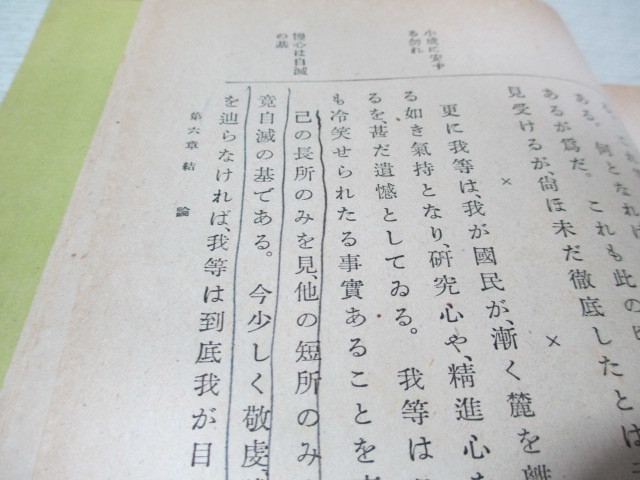 小成に安する勿れ
慢心は自滅の基
ある。何となれば
あるが爲だ。これも此の
見受けるが、尙ほ未だ徹底したとは
×　　×
更に我等は、我が國民が、漸く麓を離
る如き氣持となり、硏究心や、精進心
るを、甚だ遺憾としてゐる。我等は
も冷笑せられたる事實あることを
己の長所のみを見、他の短所のみ
竟自滅の基である。今少しく敬虔
を辿らなければ、我等は到底我が目
第六章 結論